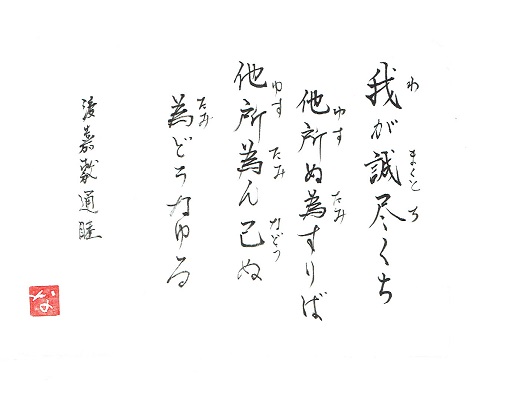 我が誠尽くち
わ まくと ち
他所ぬ為すりば
ゆす たみ
他所為ん己ぬ
ゆす たみ などぅ
為どぅなゆる
たみ
渡嘉敷通